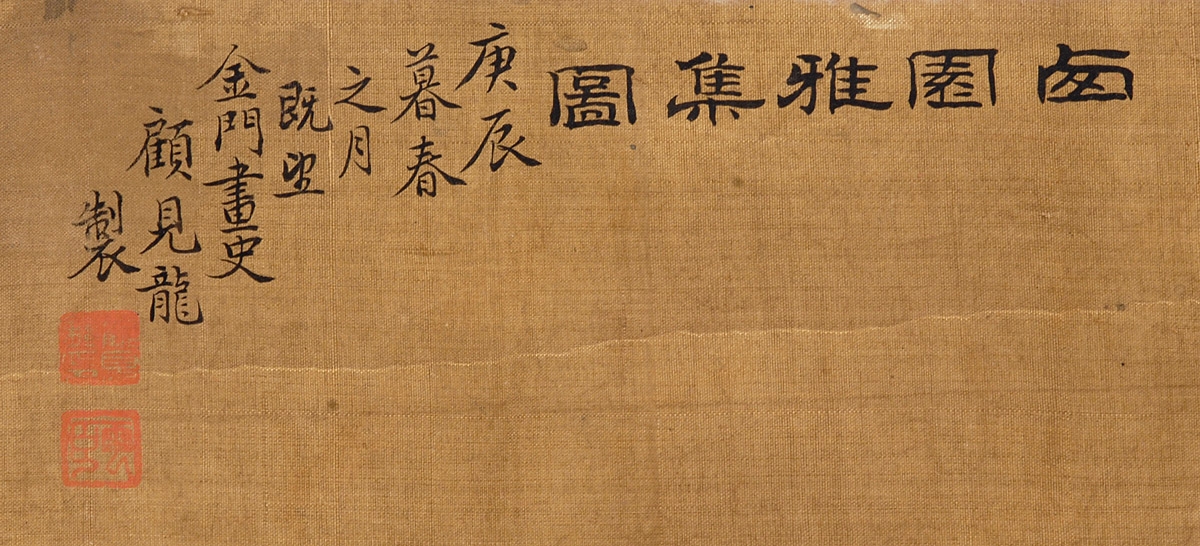 西園雅集圖
庚辰
暮春
之月
既望
金門畫史
顧見龍
製